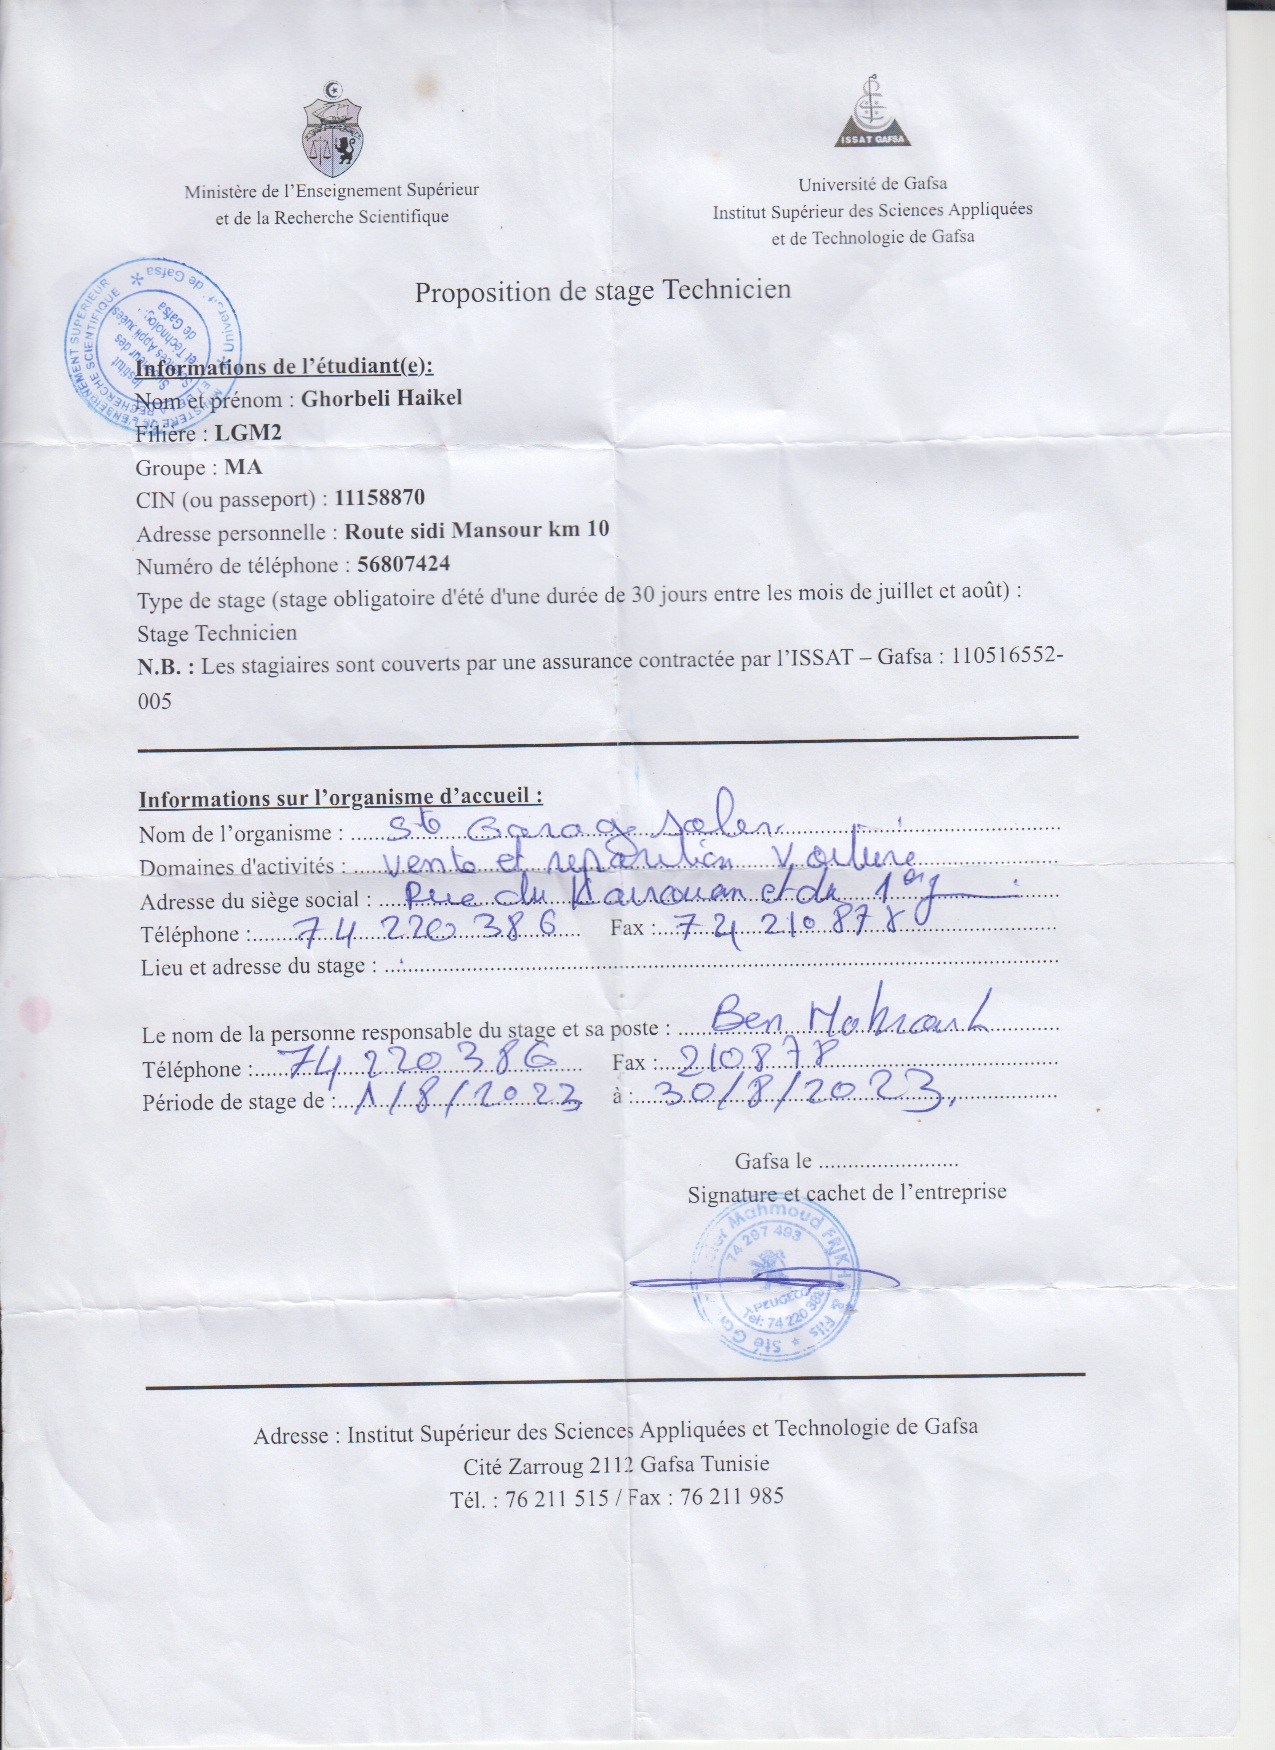 ISSAT GAFSA
Ministère de l'Enseignement Supérieur
et de la Recherche Scientifique
Université de Gafsa
Institut Supérieur des Sciences Appliquées
et de Technologie de Gafsa
Proposition de stage Technicien
Informations de l'étudiant(e):
Nom et prénom : Ghorbeli Haikel
Filière : LGM2
Groupe : MA
CIN (ou passeport) : 11158870
Adresse personnelle : Route sidi Mansour km 10
Numéro de téléphone : 56807424
Type de stage (stage obligatoire d'été d'une durée de 30 jours entre les mois de juillet et août) :
Stage Technicien
N.B. : Les stagiaires sont couverts par une assurance contractée par l'ISSAT – Gafsa : 110516552-
005
Informations sur l'organisme d'accueil :
Nom de l'organisme : Sté Garage
Domaines d'activités : Vente et réparation Voiture
Adresse du siège social : Rue du Kairouan et du 1er
Téléphone : 74 220 386 Fax : 74 210 878
Lieu et adresse du stage :
Le nom de la personne responsable du stage et sa poste : Ben Mabrouk
Téléphone : 74 220 386 Fax : 210878
Période de stage de : 1/8/2023 à : 30/8/2023
Gafsa le ........................
Signature et cachet de l'entreprise
Mahmoud FRIKHA & Fils * Sté
74 297 493
PEUGEOT
Tel: 74 220 386
Adresse : Institut Supérieur des Sciences Appliquées et Technologie de Gafsa
Cité Zarroug 2112 Gafsa Tunisie
Tél. : 76 211 515 / Fax : 76 211 985